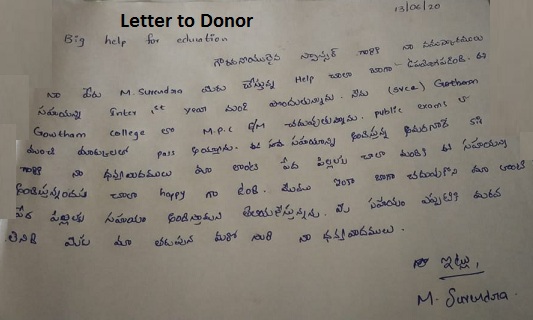 Letter to Donor
13/06/20
Big help for education
గౌరవనీయులైన స్పాన్సర్ గారికి నా నమస్కారములు
నా పేరు M. Surendra మీరు చేస్తున్న Help చాలా బాగా ఉపయోగపడింది. ఈ
సహాయన్ని Inter 1st year నుండి పొందుతున్నాను. నేను (SVCE) Gowtham
Gowtham college లో M.P.C E/M చదువుతున్నాను. public exams లో
మంచి మార్కులతో pass అయ్యాను. ఈ సహాయాన్ని
గారికి నా ధన్యవాదములు మా లాంటి పేద పిల్లలకు చాలా మంచి ఈ సహాయాన్ని
అందిస్తున్నందుకు చాలా happy గా ఉంది. మేము ఇంకా బాగా చదువుకొని మా లాంటి
పేద పిల్లలకు సహాయం అందిస్తామని తెలియజేస్తున్నాను. మీ సహాయం ఎప్పటికీ మరువ
లేనిది మీకు మా తరుపున మరో సారి నా ధన్యవాదములు.
ఇట్లు,
M. Surendra.